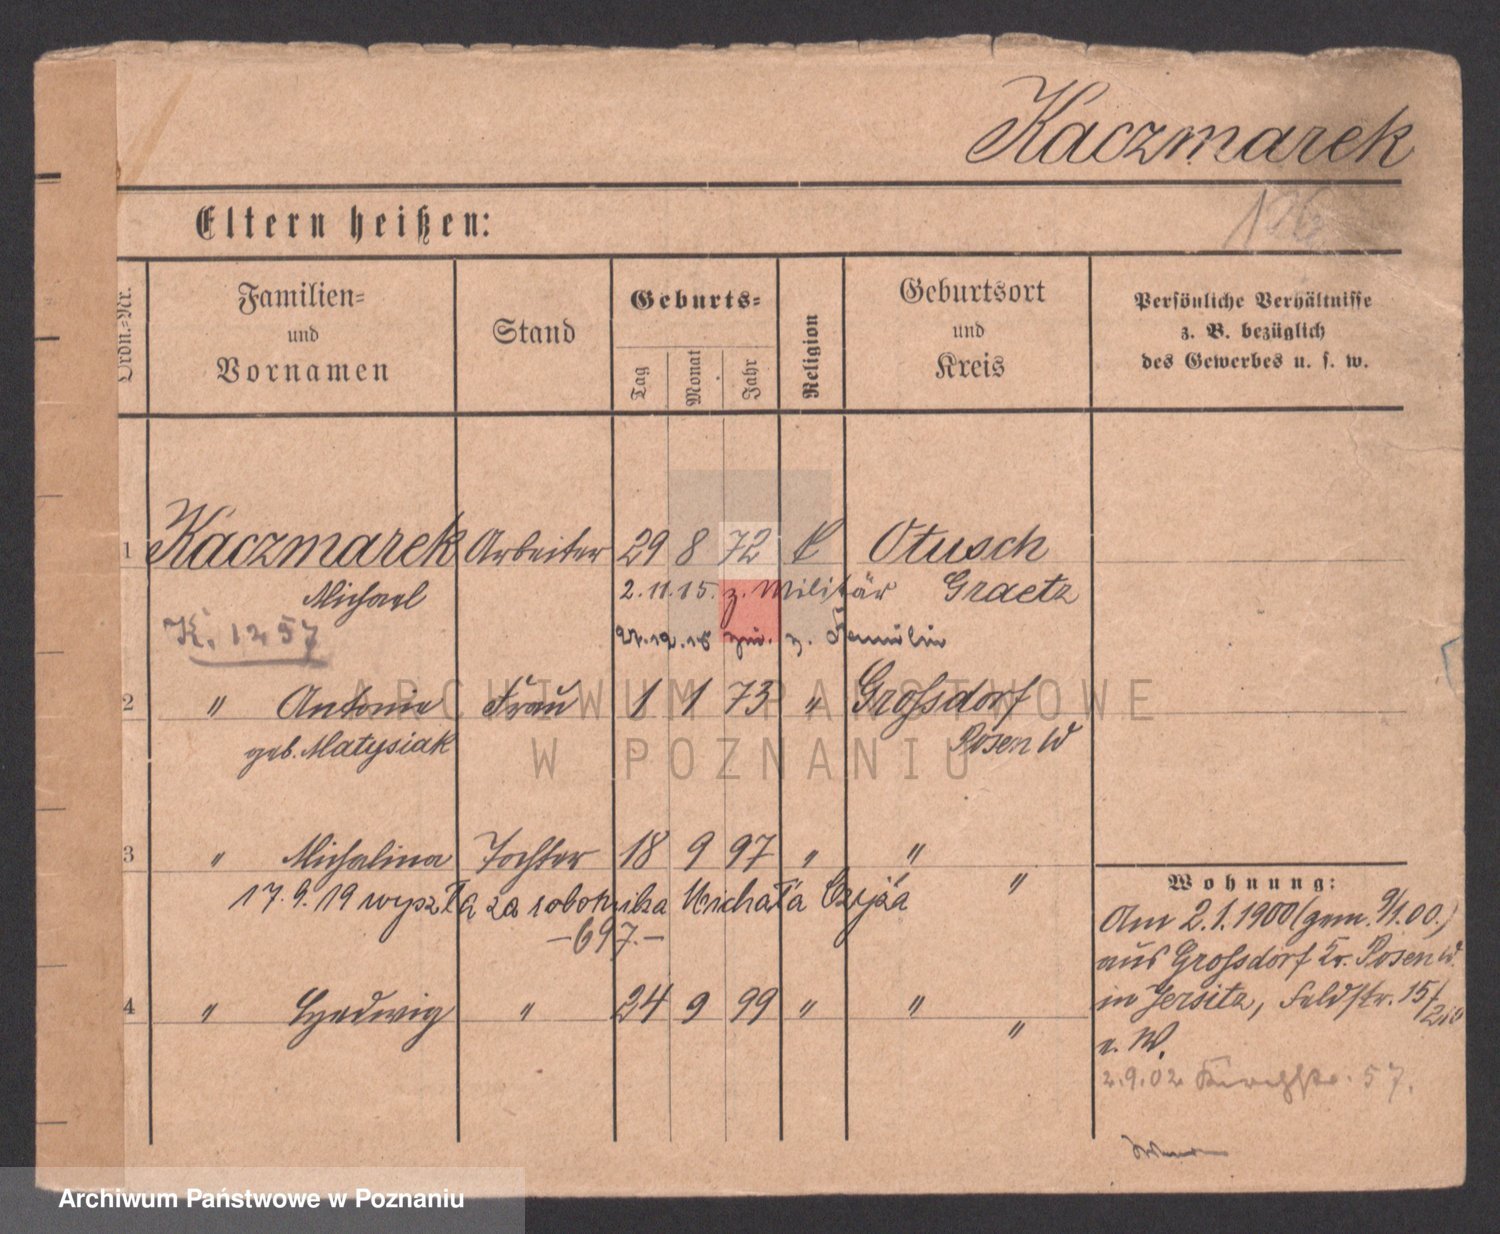 Kaczmarek
Eltern heißen:
Ordn.-Nr.
Familien-
und
Vornamen
Stand
Geburts-
Tag
Monat
Jahr
Religion
Geburtsort
und
Kreis
Persönliche Verhältnisse
z. B. bezüglich
des Gewerbes u. s. w.
1 Kaczmarek Arbeiter 29 8 72 k Otusch
Michael 2.11.15. z. Militär Graetz
K. 1257 27.12.18 zur. z. Familie
2 " Antonie Frau 1 1 73 " Großdorf
geb. Matysiak Posen W
3 " Michalina Tochter 18 9 97 " " "
17.9.19 wyszła za robotnika Michała
-697.-
4 " Hedwig " 24 9 99 " " "
Wohnung:
Am 2.1.1900 (gem. 9/1.00.)
aus Großdorf Kr. Posen W.
in Jersitz, Feldstr. 15/
z. W.
2.9.02 Kirchstr. 57.
ARCHIWUM PAŃSTWOWE
W POZNANIU
Archiwum Państwowe w Poznaniu